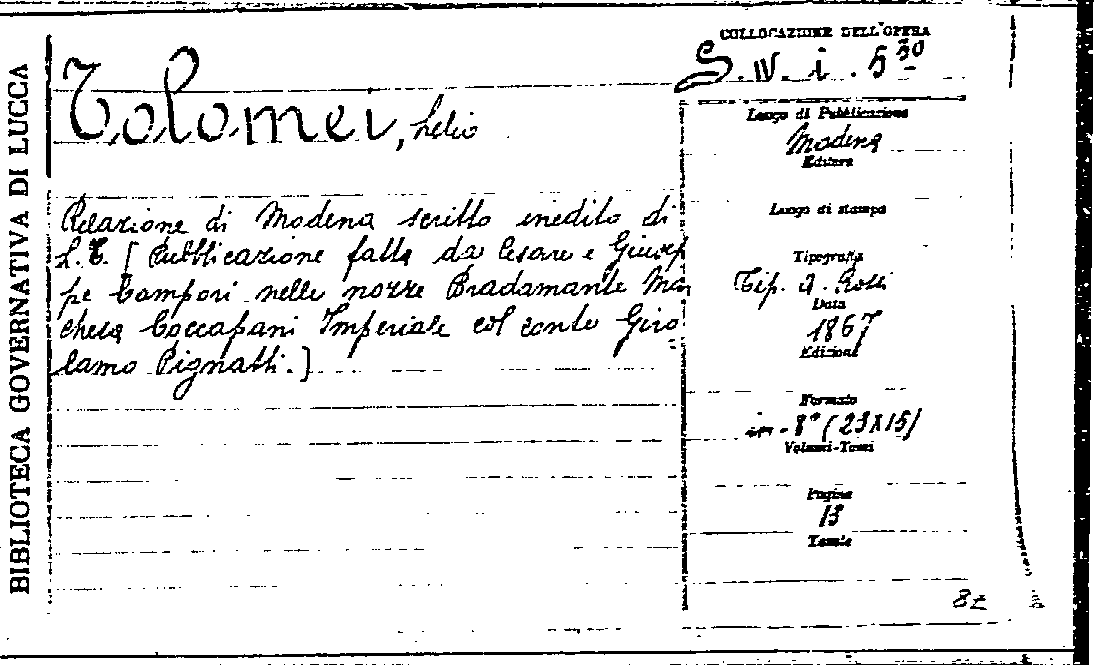 BIBLIOTECA GOVERNATIVA DI LUCCA
Tolomei, Lelio
Relazione di Modena scritto inedito di
L. T. [Pubblicazione fatta da Cesare e Giusep
pe Campori nelle nozze Bradamante Mar
chesa Coccapani Imperiale col conte Giro
lamo Pignatti.]
COLLOCAZIONE DELL'OPERA
S. IV. i. 5 30
Luogo di Pubblicazione
Modena
Editore
Luogo di stampa
Tipografia
Tip. A. Rossi
Data
1867
Edizione
Formato
in-8° (23X15)
Volumi-Tomi
Pagine
13
Tavole